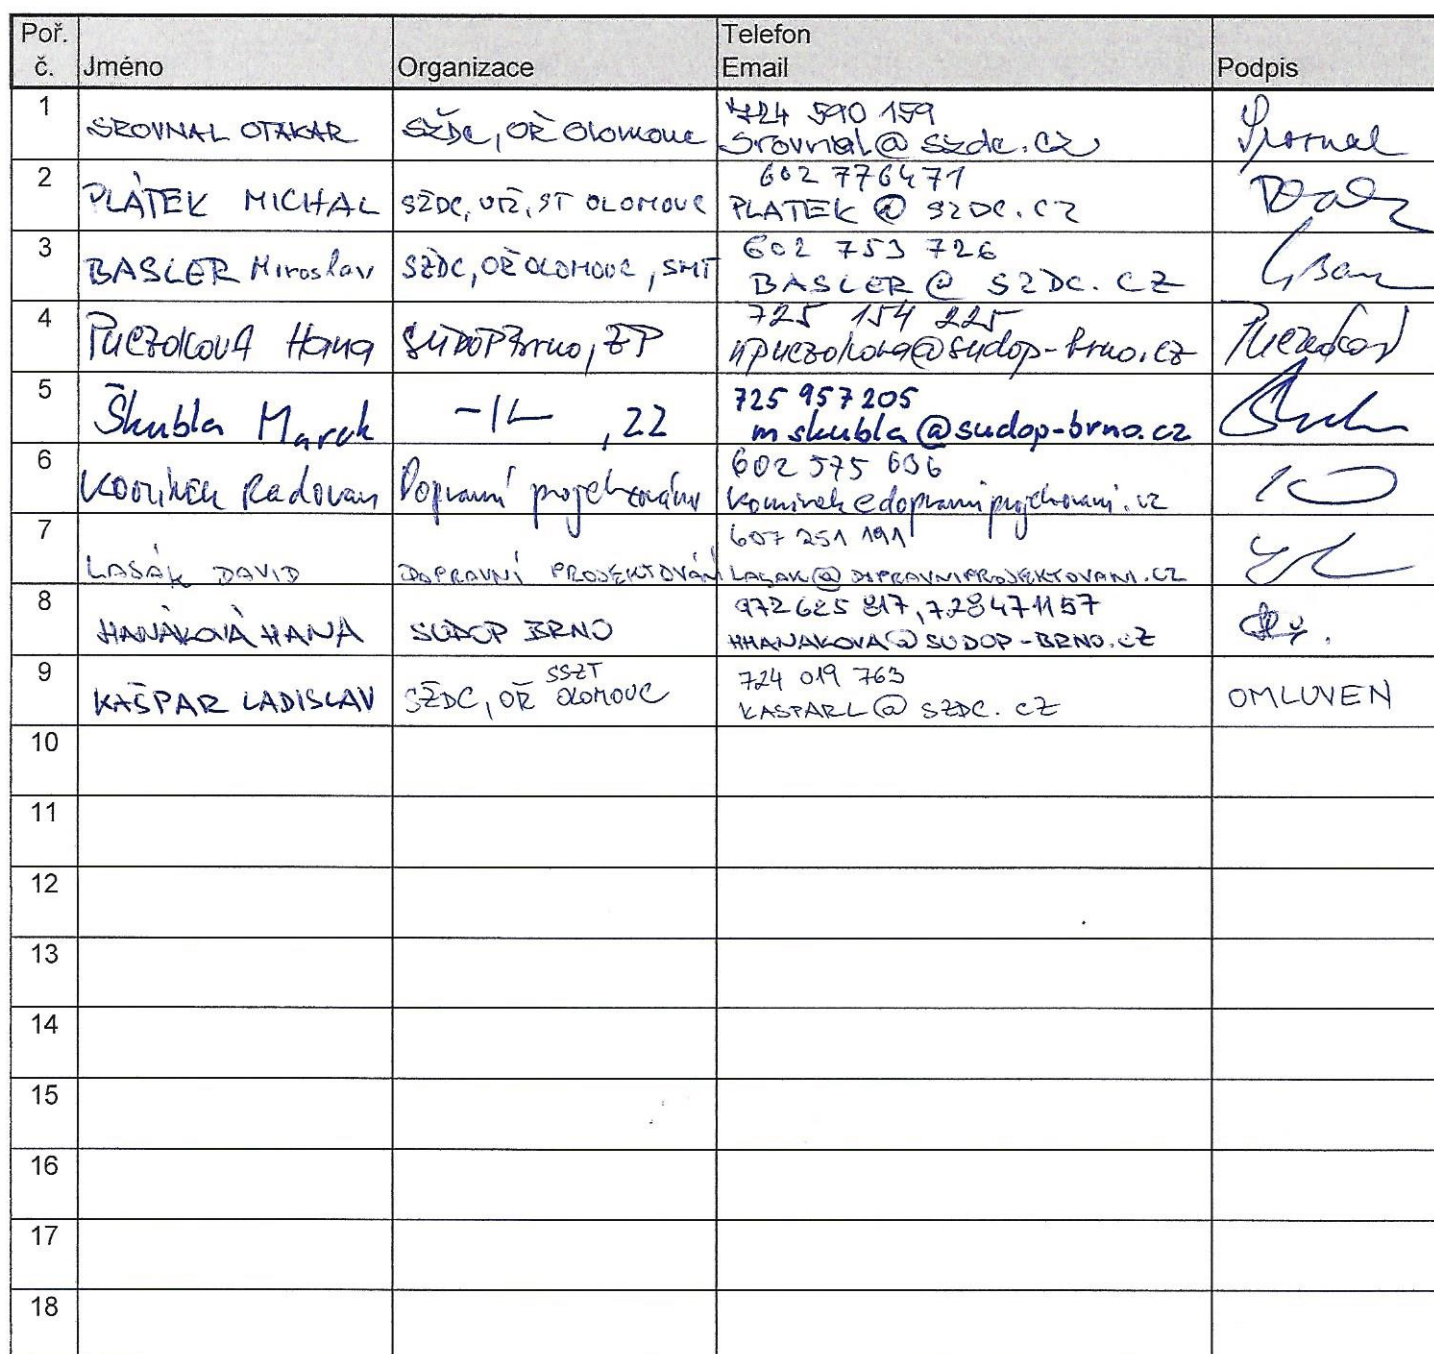 Poř. č. Jméno Organizace Telefon Email Podpis
1 SROVNAL OTAKAR SŽDC, OŘ Olomouc 724 590 159
Srovnal@szdc.cz Srovnal
2 PLÁTEK MICHAL SŽDC, OŘ, ST OLOMOUC 602 776471
PLATEK @ SZDC.CZ
3 BASLER Miroslav SŽDC, OŘ OLOMOUC, SMT 602 753 726
BASLER@ SZDC.CZ
4 PUCZOKOVÁ Hana SUDOP Brno, ŽP 725 154 225
hpuczokova@sudop-brno.cz
5 Škubla Marek -||- , 22 725 957 205
mskubla@sudop-brno.cz
6 Komínek Radovan Dopravní projektování 602 575 696
kominek@dopravniprojektovani.cz
7 LASÁK DAVID DOPRAVNÍ PROJEKTOVÁNÍ 607 251 191
LASAK@DOPRAVNIPROJEKTOVANI.CZ
8 HANÁKOVÁ HANA SUDOP BRNO 972625 817, 728471157
HHANAKOVA@SUDOP-BRNO.CZ
9 KAŠPAR LADISLAV SŽDC, OŘ OLOMOUC SSZT 724 019 763
KASPARL@SZDC.CZ OMLUVEN
10
11
12
13
14
15
16
17
18